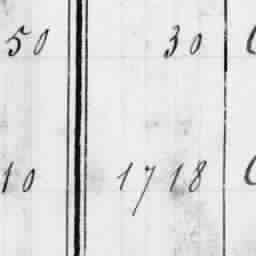 50 30
10 1718